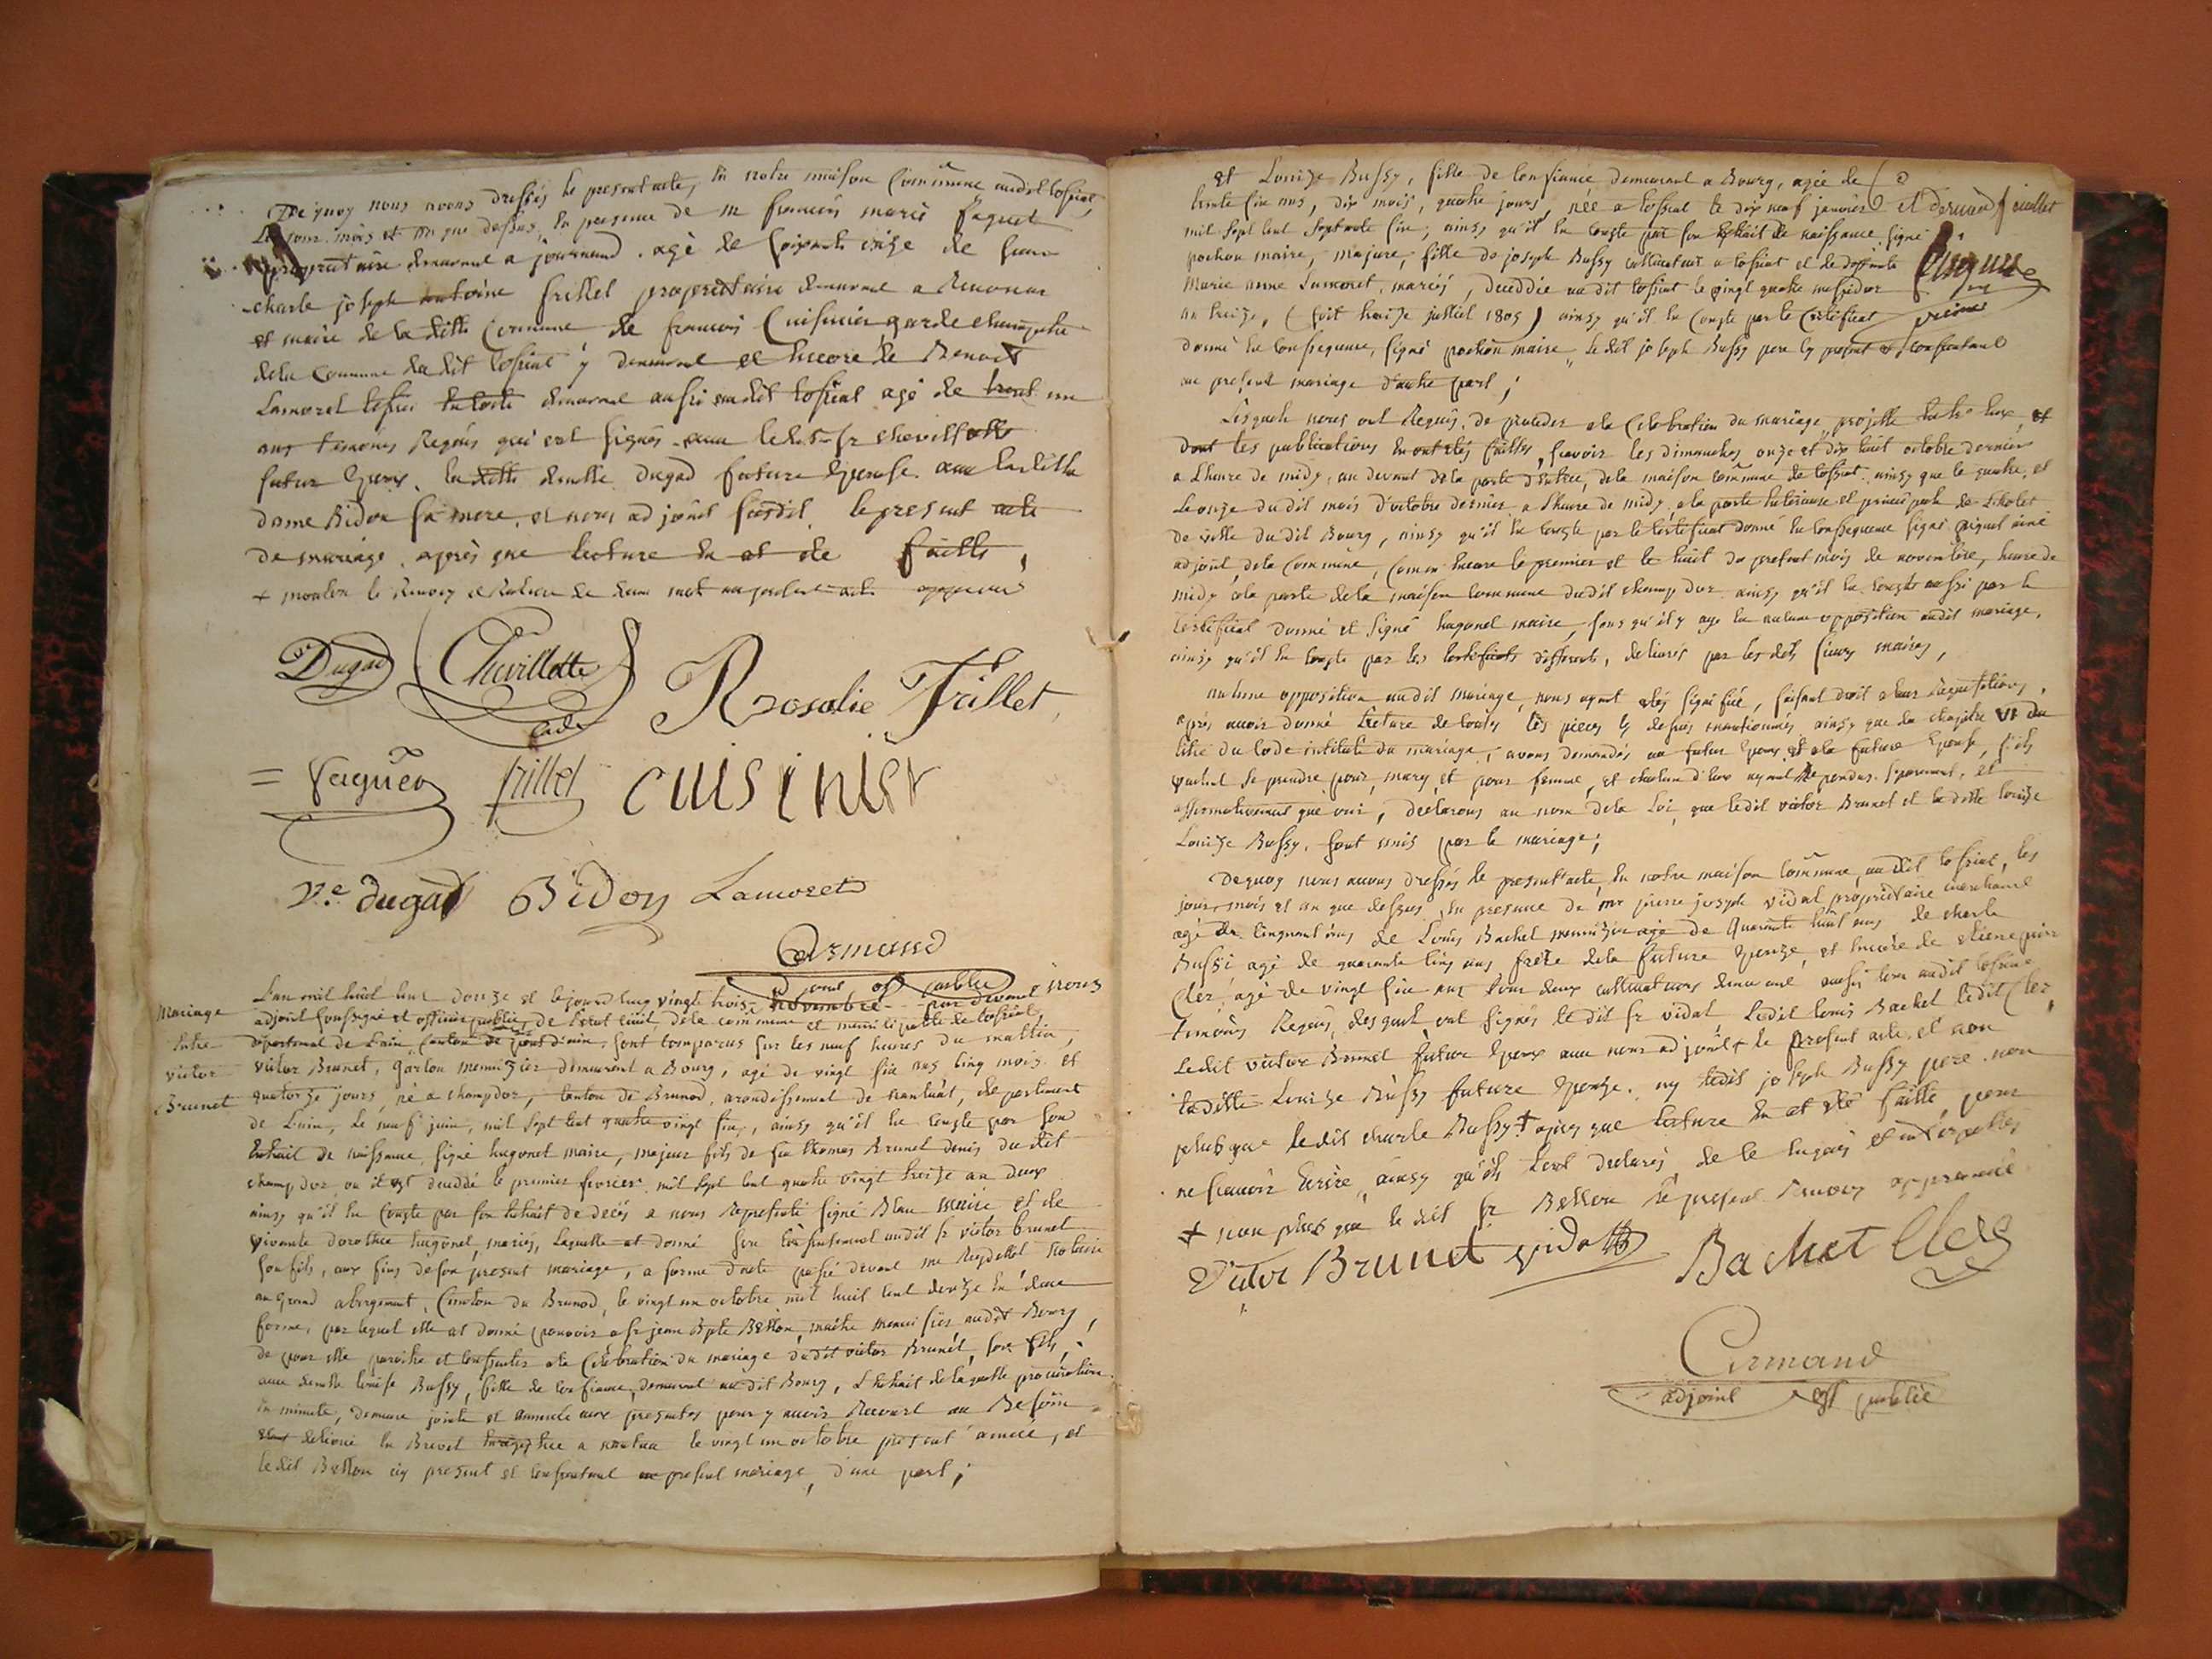 De quoy nous avons dressés le present acte, en notre maison commune audit tossiat,
Le jour mois et an que dessus, en presence de m françois marie faguet
proprietaire demeurant a journand agé de soixante seize de sieur
charle joseph antoine frillet proprietaire demeurant a Revonas
et maire de la ditte commune de françois Cuisinier garde champetre
dela commune du dit tossiat y demeurant et encore de Benoit
Lamoret demeurant aussi audit tossiat agé de trent un
ans temoins Requis qui ont signés avec ledit sr chevillotte
futur Epoux, la ditte demlle dugad future Epouse avec laditte
dame Bidon sa mere, et nous adjoint susdit le present acte
de mariage, après que lecture en at eté faitte,
+ de deux mot au present acte approuvé
Dugad Chevillotte Rosalie Frillet
cadet
= faguet frillet cuisinier
Ve dugad Bidon Lamoret
Armand
adjoint off publie
Mariage
Entre
victor
Brunet
L'an mil huit cent douze et le jourd'huy vingt trois novembre par devant nous
adjoint soussigné et officier public de l'état civil dela commune et municipalité de tossiat,
département de l'ain, canton de pont d'ain, sont comparus sur les neuf heures du mattin,
victor Brunet, garçon menuizier demeurant a Bourg, agé de vingt six ans cinq mois et
quatorze jours, né a champdor, canton de Brenod, arondissement de nantuat, departement
de L'ain, Le neuf juin, mil sept cent quatre vingt six, ainsy qu'il en conste par son
Extrait de naissance, signé hugonet maire, majeur fils de feu thomas Brunet denis du dit
champdor, ou il est deceddé le premier fevrier mil sept cent quatre vingt treize an deux
ainsy qu'il en conste par son Extrait de decès a nous Représenté signé Blan maire et de
vivante dorothée hugonet, mariés, Laquelle at donné son consentement audit sr victor brunet
son fils, aux fins de son present mariage, a forme d'acte passé devant me Reydellet notaire
au grand abergement, Canton du Brenod, le vingt un octobre mil huit cent douze en due
forme, par lequel elle at donné pouvoir a sr jean Bpte Bellon, maitre menuisier audit Bourg,
de pour elle paroitre et consentir a la Célébration du mariage dudit victor Brunet, son fils,
avec demlle louise Bussy, fille de confiance, demeurant audit Bourg, L'Extrait de laquelle procuration
en minute, demeure jointe et annexée aux presentes pour y avoir Recourt au Besoin
delivré en Brevet Enregistrée a nantua le vingt un octobre present année, et
ledit Bellon icy present et consentant au present mariage, d'une part;
et Louize Bussy, fille de confiance demeurant a Bourg, agée de
trente six ans, dix mois, quatre jours née a tossiat le dix neuf janvier
mil sept cent septante six, ainsy qu'il en conste par son Extrait de naissance signé
pochon maire, majeure, fille de joseph Bussy cultivateur a tossiat et de deffunte
Marie anne Lamoret, mariés, deceddée audit tossiat le vingt quatre messidor
an treize, (soit treize juillet 1805) ainsy qu'il en conste par le Certificat
donné en conséquence, signé pochon maire, le dit joseph Bussy pere cy present et consentant
au present mariage d'autre part;
et dernier feuillet
Lesquels nous ont Requis, de proceder a la Célébration du mariage projetté Entre Eux, et
dont les publications en ont étés faittes, sçavoir les dimanches onze et dix huit octobre dernier
a L'heure de midy, au devant de la porte d'Entrée, de la maison commune de tossiat, ainsy que le quatre, et
Le onze du dit mois d'octobre dernier a L'heure de midy, a la porte Exterieure et principale de L'hotel
de ville du dit Bourg, ainsy qu'il en conste par le Certificat donné en conséquence signé piquet ainé
adjoint dela commune, Comm Encore le premier et le huit du present mois de novembre, heure de
midy a la porte de la maison commune dudit champdor ainsy qu'il en conste aussi par le
certificat donné et signé hugonet maire, sans qu'il y aye eu aucune opposition audit mariage,
ainsy qu'il en conste par les certificats differents, delivrés par les dits sieurs maires,
aucune opposition audit mariage, nous ayant étés signifiée, faisant droit a leur Requisition,
après avoir donné Lecture de toutes les pieces cy dessus mentionnées ainsy que du chapitre VI du
titre du Code intitulé du mariage, avons demandés au futur Epoux et a la future Epouse, s'ils
veulent se prendre pour mary et pour femme, et chacun d'Eux ayant Repondus separement, et
affirmativement que oui, declarons au nom dela Loi, que ledit victor Brunet et la ditte louize
Louize Bussy, sont unis par le mariage;
De quoy nous avons dressés le present acte, en notre maison commune, au dit tossiat, les
jour, mois et an que dessus, en presence de mr pierre joseph vidal proprietaire marchand
agé de cinquant ans de Louis Bachet menuizier agé de Quarante huit ans de charle
Bussi agé de quarante cinq ans frère dela future Epouze, et Encore de
Clez, agé de vingt six ans tous deux cultivateurs demeurant audit tossiat
temoins Requis, desquels ont signés le dit sr vidal, Ledit louis Bachet ledit Clez,
ledit victor Brunet futur Epoux avec nous adjoint le present acte et non
laditte Louize Bussy future Epouze, ny ledit joseph Bussy pere non
plus que ledit charle Bussy + après que lecture en at été faitte, pour
ne sçavoir Ecrire, ainsy qu'ils l'ont declarés, de ce Enquis et interpellés
+ non plus que le dit sr Bellon le present Renvoy approuvé
Victor Brunet vidal Bachet Clez
Armand
adjoint off publie